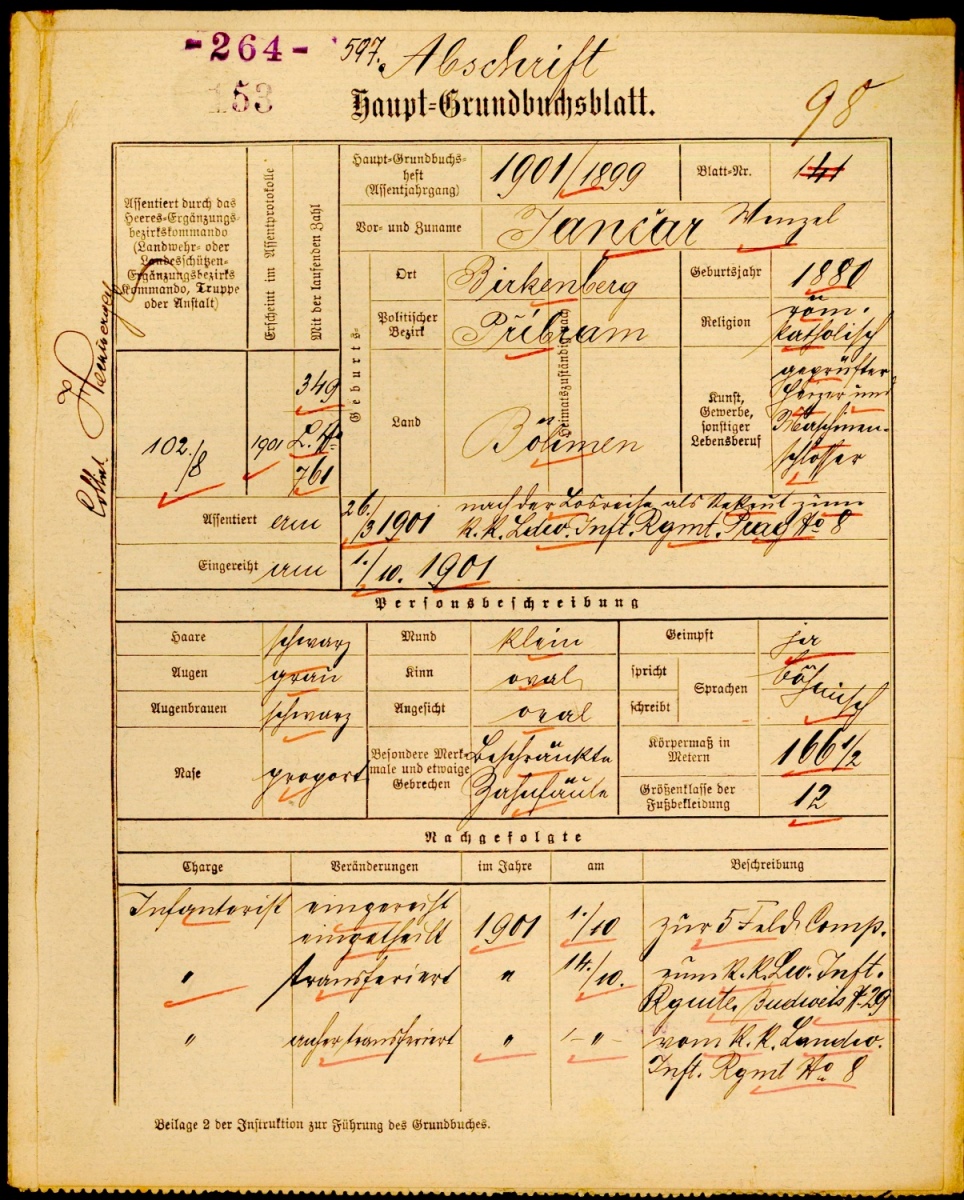 -264-
153
597. Abschrift
98
Haupt-Grundbuchsblatt.
Assentiert durch das
Heeres-Ergänzungs-
bezirkskommando
(Landwehr- oder
Landesschützen-
Ergänzungsbezirks
Kommando, Truppe
oder Anstalt)
Erscheint im Assentprotokolle
Mit der laufenden Zahl
Haupt-Grundbuchs-
heft
(Assentjahrgang)
1901/1899
Blatt-Nr.
141
Vor- und Zuname
Jančar Wenzel
Geburts-
Heimatszuständig nach
Ort
Birkenberg
Geburtsjahr
1880
Politischer
Bezirk
Příbram
Religion
röm.
katholisch
Land
Böhmen
Kunst,
Gewerbe,
sonstiger
Lebensberuf
geprüfter
Heizer und
Maschinen-
schlosser
102./8
1901
349
L. No
761
Assentiert am
26./3 1901
nach der Losreihe als Rekrut zum
k. k. Ldw. Inft. Rgmt. Prag No 8
Eingereiht am
1./10. 1901
Personsbeschreibung
Haare
schwarz
Mund
klein
Geimpft
ja
Augen
grau
Kinn
oval
spricht
schreibt
Sprachen
böhmisch
Augenbrauen
schwarz
Angesicht
oval
Nase
proport
Besondere Merk-
male und etwaige
Gebrechen
Beschränkte
Zahnfäule
Körpermaß in
Metern
166 1/2
Größenklasse der
Fußbekleidung
12
Nachgefolgte
Charge Veränderungen im Jahre am Beschreibung
Infanterist eingereiht
eingetheilt 1901 1./10 zur 5 Feld Comp.
" transferiert " 14./10. zum k. k. Lw. Inft.
Rgmte. Budweis No 29
" anher transferiert " -"- vom k. k. Landw.
Inft. Rgmt No 8
Beilage 2 der Instruktion zur Führung des Grundbuches.